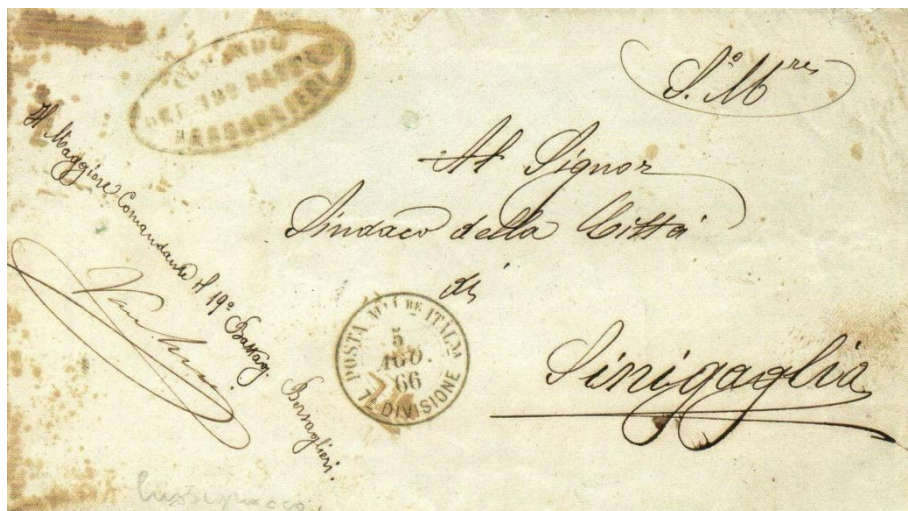 COMANDO
BERSAGLIERI
S.º M.res
Al Signor
Sindaco della Città
di
Sinigaglia
Il Maggiore Comandante il 19º Battagl.
Bersaglieri.
POSTA MILRE ITALNA
5
AGO.
66
7ª DIVISIONE
Lussignacco